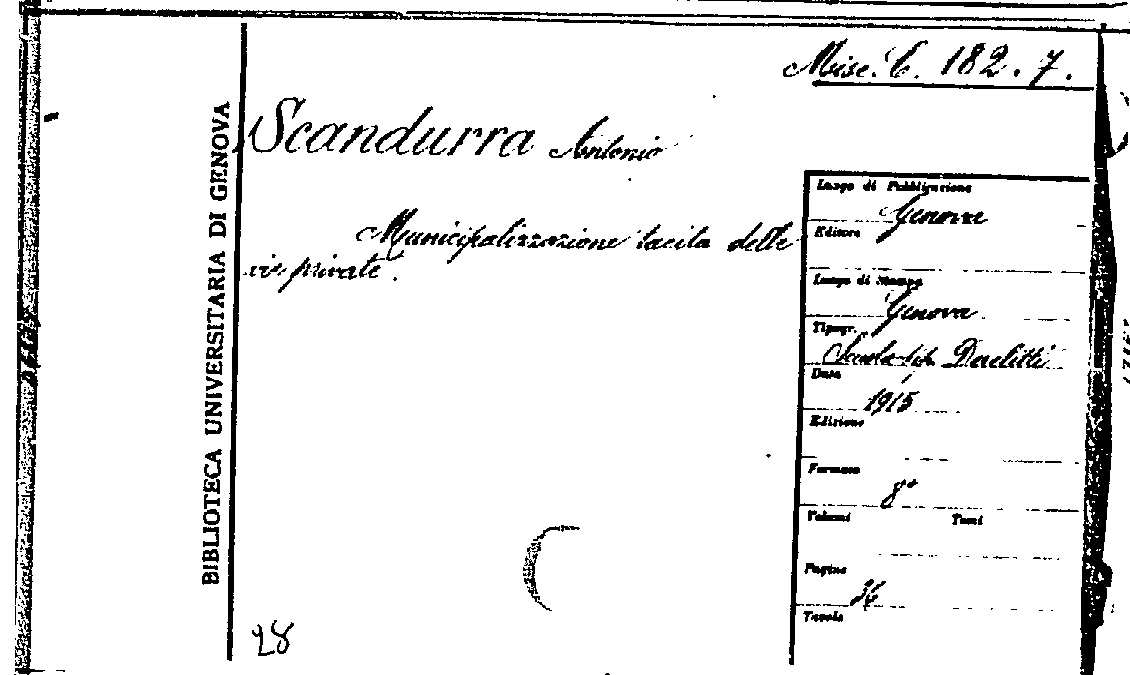 Misc. C. 182. 7.
BIBLIOTECA UNIVERSITARIA DI GENOVA
Scandurra Antonio
Municipalizzazione tacita delle
vie private.
Luogo di Pubblicazione
Genova
Editore
Luogo di Stampa
Genova
Tipogr.
Scuola tip. Derelitti
Data
1915
Edizione
Formato
8°
Volumi Tomi
Pagine
36
Tavole
28